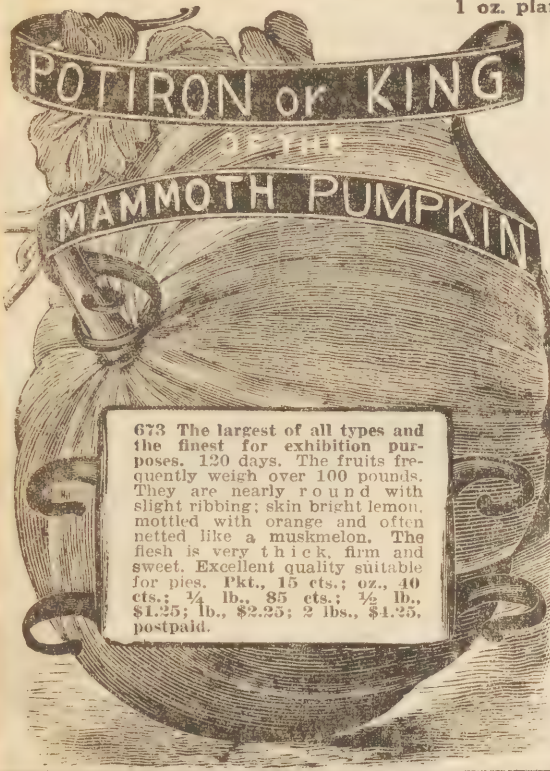 1 oz.
POTIRON or KING
OF THE
MAMMOTH PUMPKIN
673 The largest of all types and
the finest for exhibition pur-
poses. 120 days. The fruits fre-
quently weigh over 100 pounds.
They are nearly round with
slight ribbing; skin bright lemon,
mottled with orange and often
netted like a muskmelon. The
flesh is very thick, firm and
sweet. Excellent quality suitable
for pies. Pkt., 15 cts.; oz., 40
cts.; ¼ lb., 85 cts.; ½ lb.,
$1.25; lb., $2.25; 2 lbs., $4.25,
postpaid.